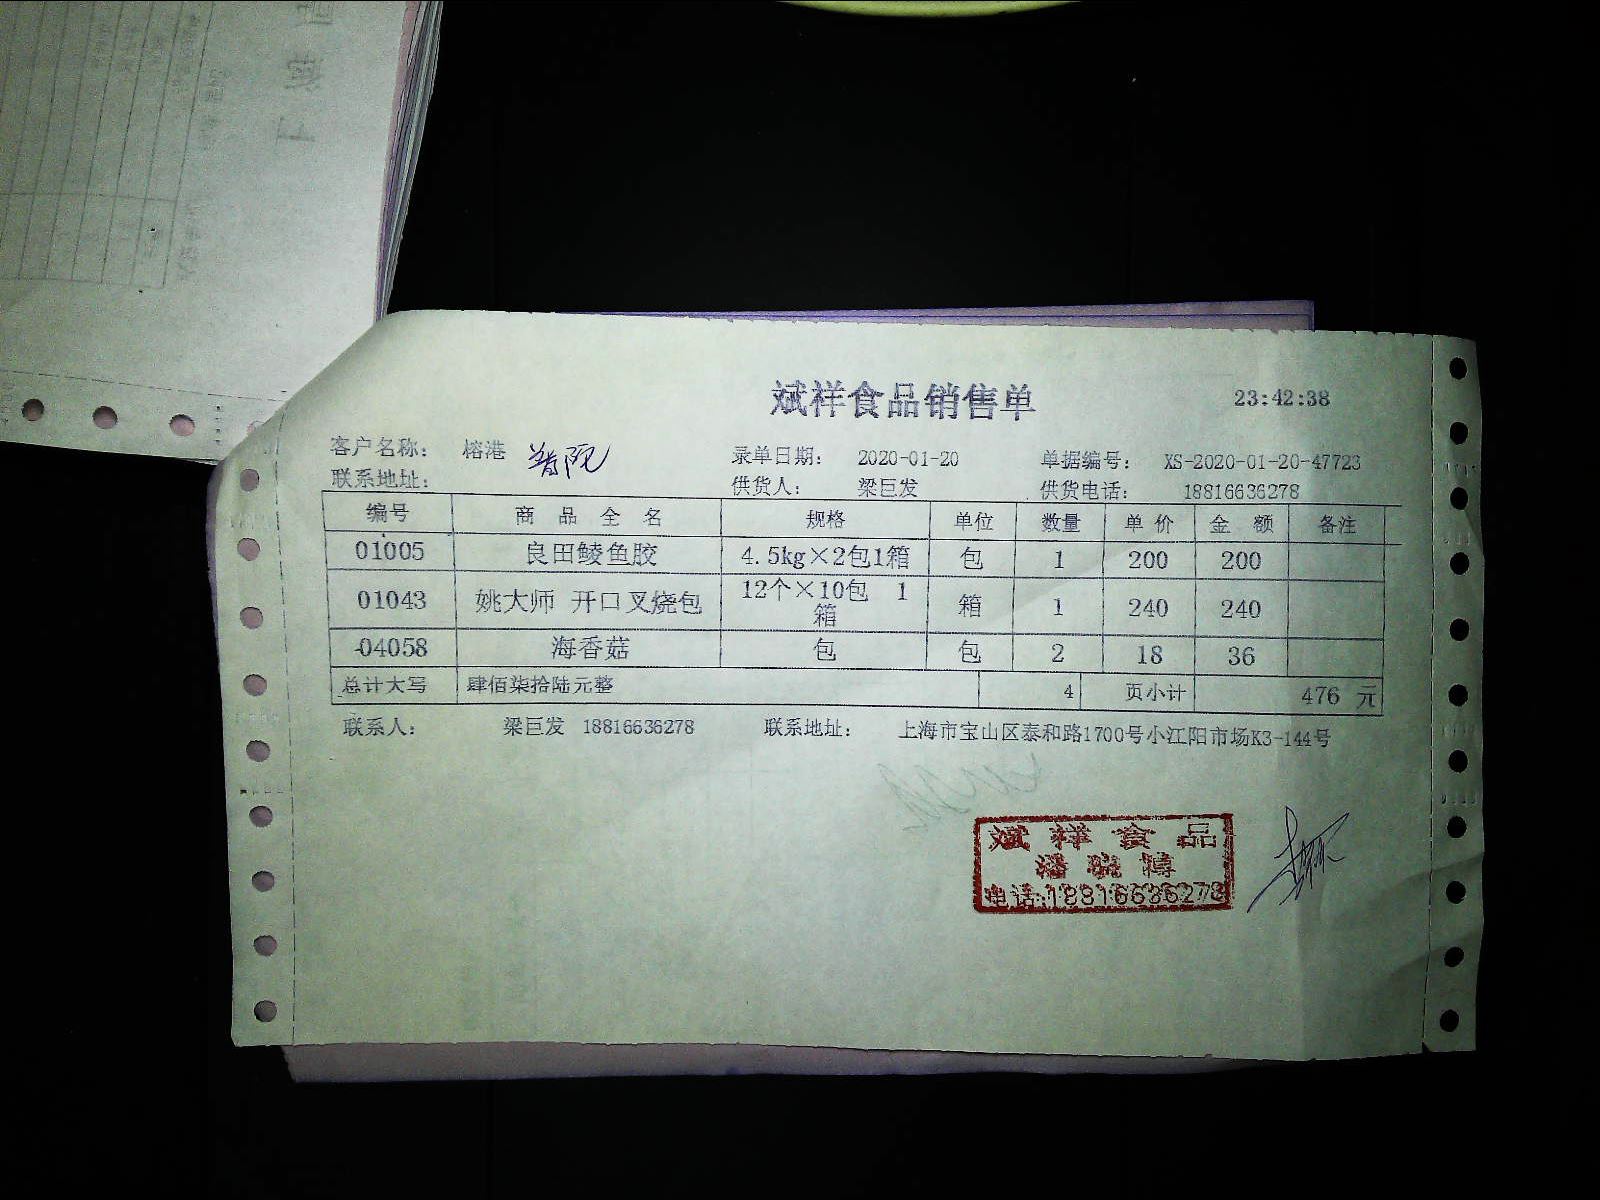 斌祥食品销售单 23:42:38
客户名称： 榕港 普陀 录单日期： 2020-01-20 单据编号： XS-2020-01-20-47723
联系地址： 供货人： 梁巨发 供货电话： 18816636278
编号 商品全名 规格 单位 数量 单价 金额 备注
01005 良田鲮鱼胶 4.5kg×2包1箱 包 1 200 200
01043 姚大师 开口叉烧包 12个×10包 1箱 箱 1 240 240
04058 海香菇 包 包 2 18 36
总计大写 肆佰柒拾陆元整 4 页小计 476 元
联系人： 梁巨发 18816636278 联系地址： 上海市宝山区泰和路1700号小江阳市场K3-144号
斌祥食品
电话:18816636278